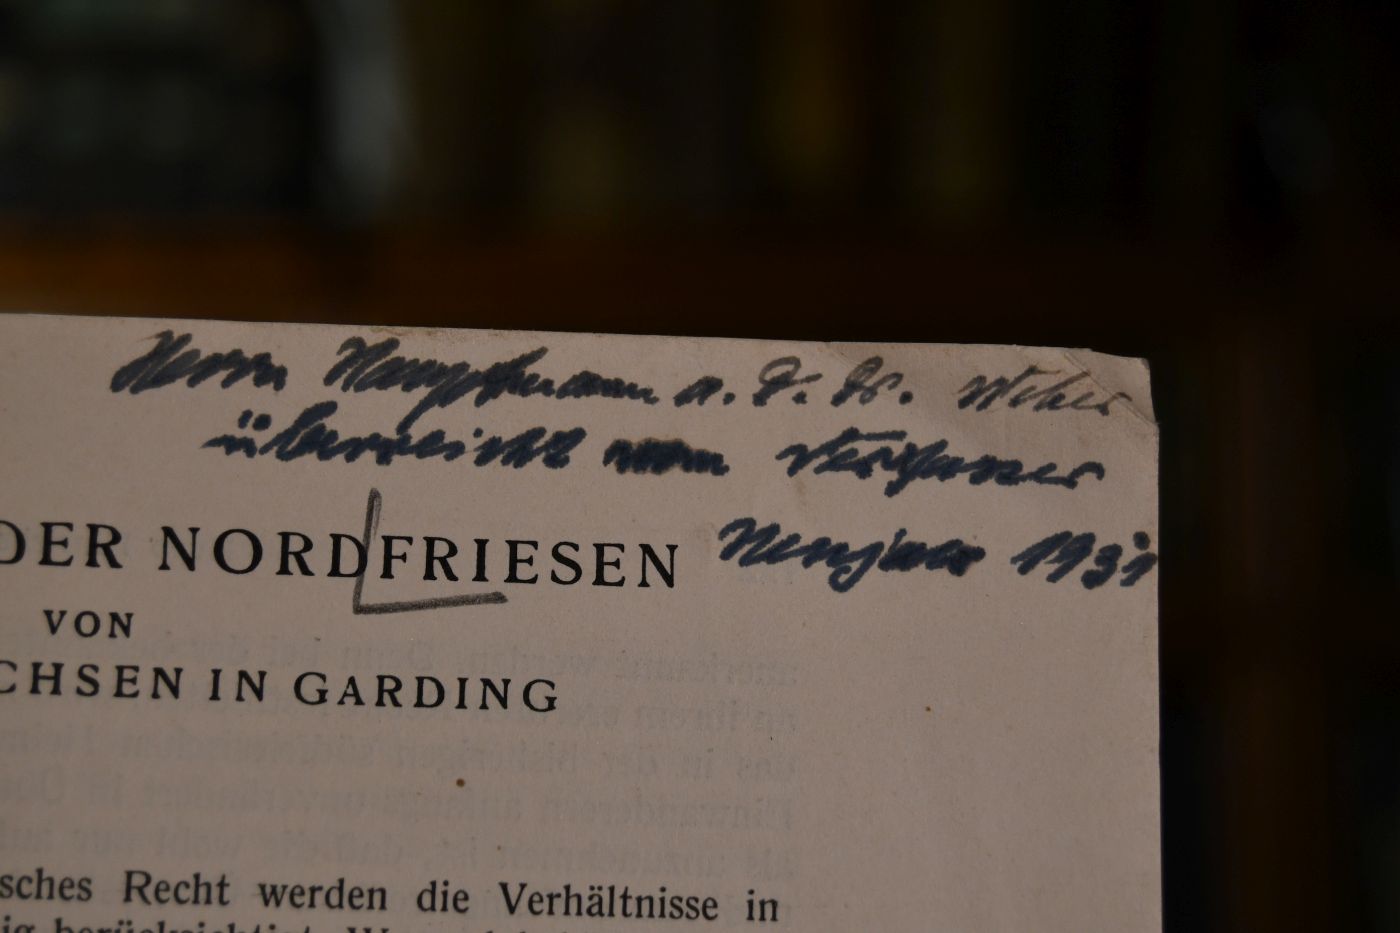 Herrn Hauptmann a. D. W. Weber
überreicht vom Verfasser
Neujahr 1931
DER NORDFRIESEN
VON
CHSEN IN GARDING
sches Recht werden die Verhältnisse in
ig berücksichtigt.